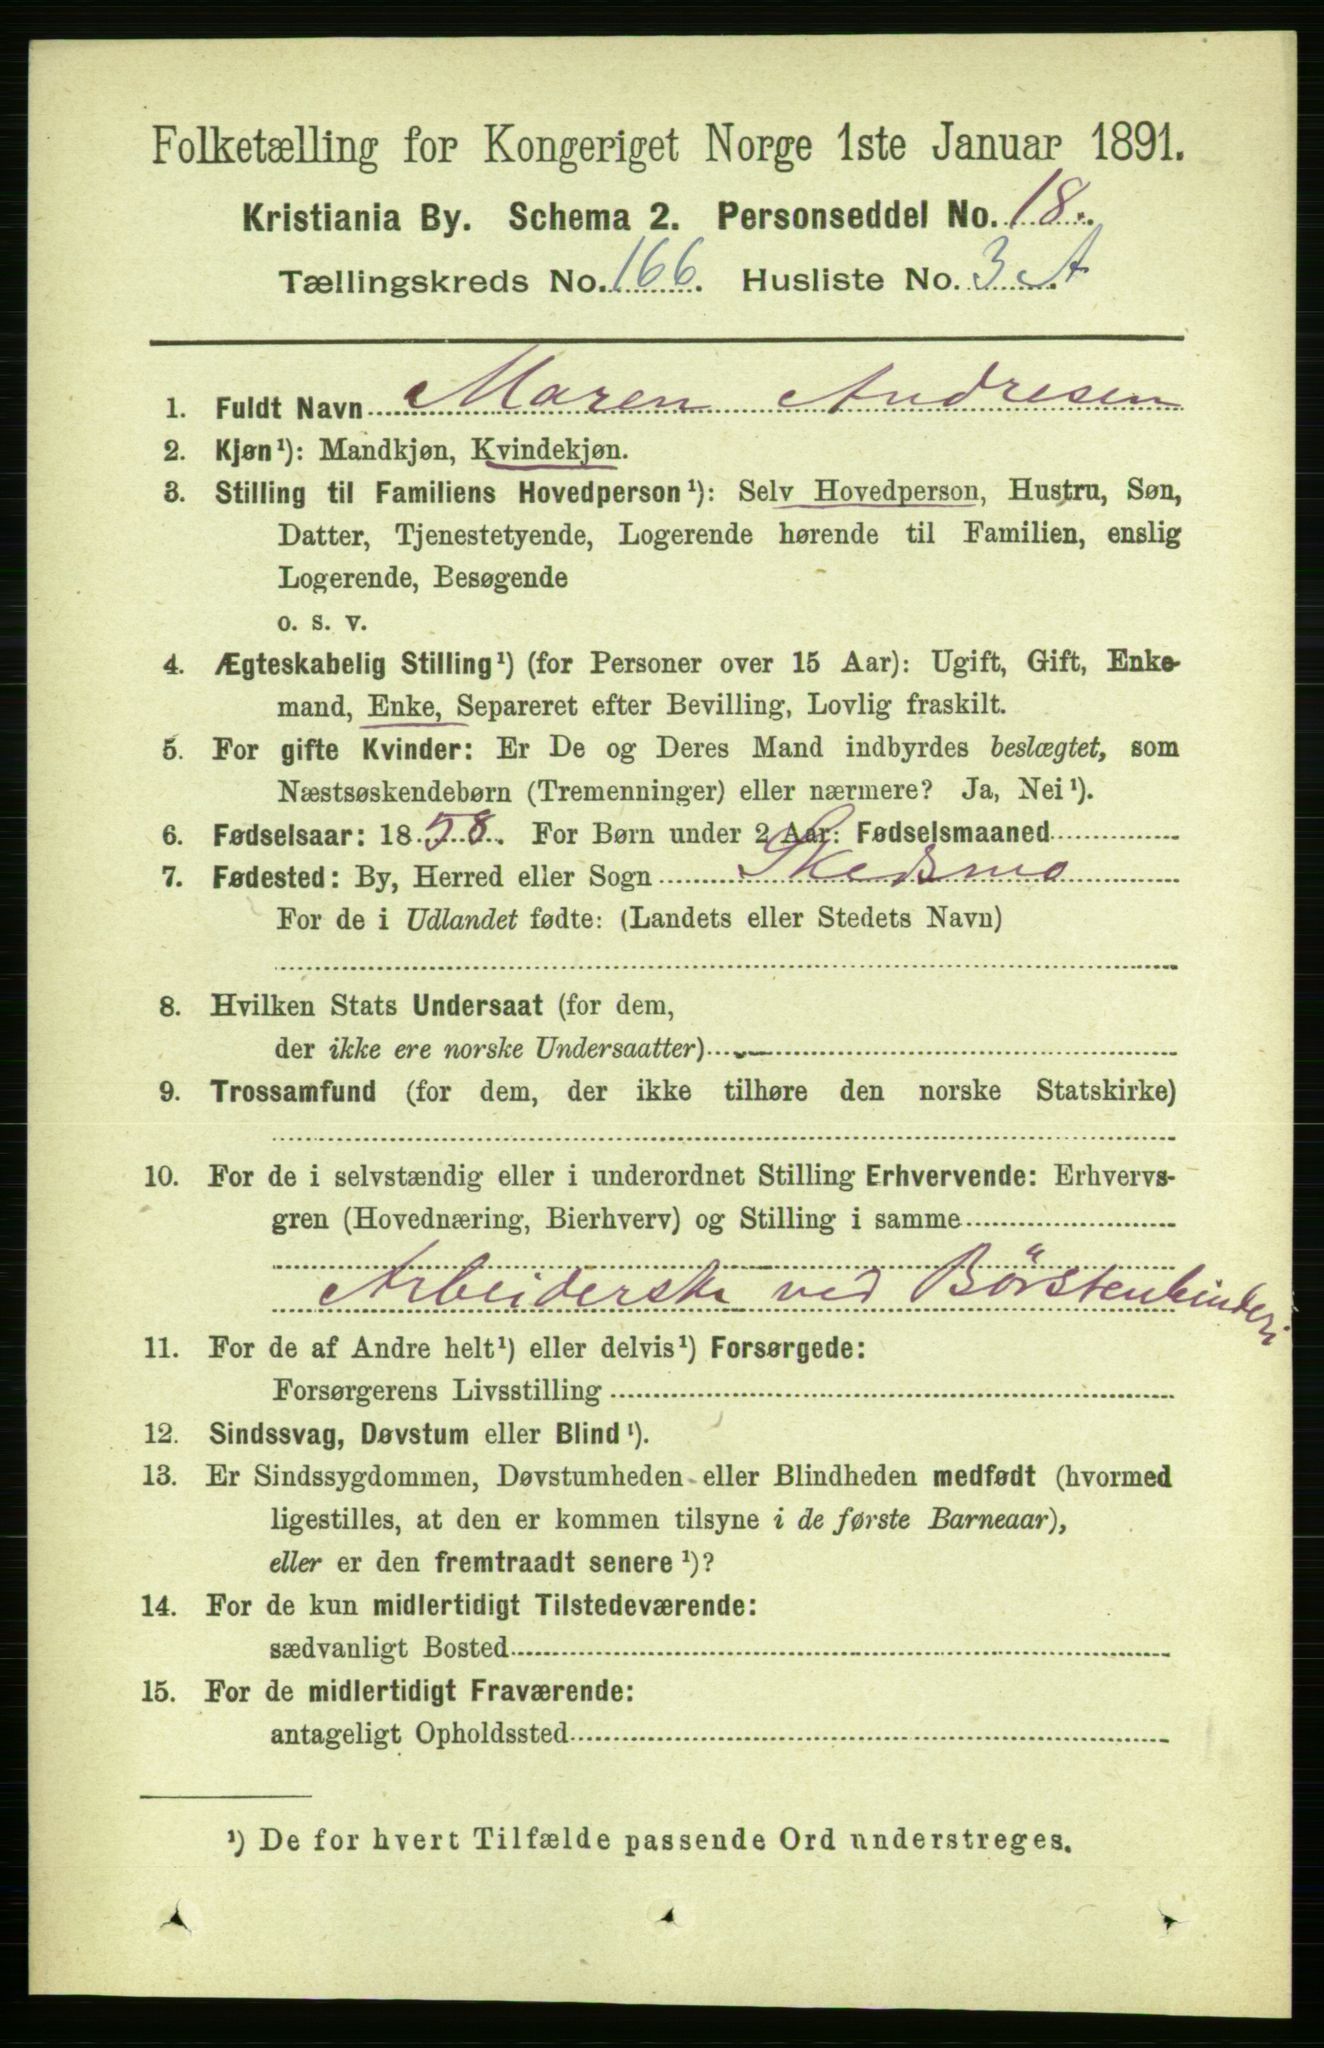 Folketælling for Kongeriget Norge 1ste Januar 1891.
Kristiania By. Schema 2. Personseddel No. 18.
Tællingskreds No. 166. Husliste No. 3 A
1. Fuldt Navn Maren Andresen
2. Kjøn¹): Mandkjøn, Kvindekjøn.
3. Stilling til Familiens Hovedperson¹): Selv Hovedperson, Hustru, Søn,
Datter, Tjenestetyende, Logerende hørende til Familien, enslig
Logerende, Besøgende
o. s. v.
4. Ægteskabelig Stilling¹) (for Personer over 15 Aar): Ugift, Gift, Enke-
mand, Enke, Separeret efter Bevilling, Lovlig fraskilt.
5. For gifte Kvinder: Er De og Deres Mand indbyrdes beslægtet, som
Næstsøskendebørn (Tremenninger) eller nærmere? Ja, Nei¹).
6. Fødselsaar: 1858. For Børn under 2 Aar: Fødselsmaaned
7. Fødested: By, Herred eller Sogn Skedsmo
For de i Udlandet fødte: (Landets eller Stedets Navn)
8. Hvilken Stats Undersaat (for dem,
der ikke ere norske Undersaatter)
9. Trossamfund (for dem, der ikke tilhøre den norske Statskirke)
10. For de i selvstændig eller i underordnet Stilling Erhvervende: Erhvervs-
gren (Hovednæring, Bierhverv) og Stilling i samme
Arbeiderske ved Börstenbinderi
11. For de af Andre helt¹) eller delvis¹) Forsørgede:
Forsørgerens Livsstilling
12. Sindssvag, Døvstum eller Blind¹).
13. Er Sindssygdommen, Døvstumheden eller Blindheden medfødt (hvormed
ligestilles, at den er kommen tilsyne i de første Barneaar),
eller er den fremtraadt senere¹)?
14. For de kun midlertidigt Tilstedeværende:
sædvanligt Bosted
15. For de midlertidigt Fraværende:
antageligt Opholdssted
¹) De for hvert Tilfælde passende Ord understreges.